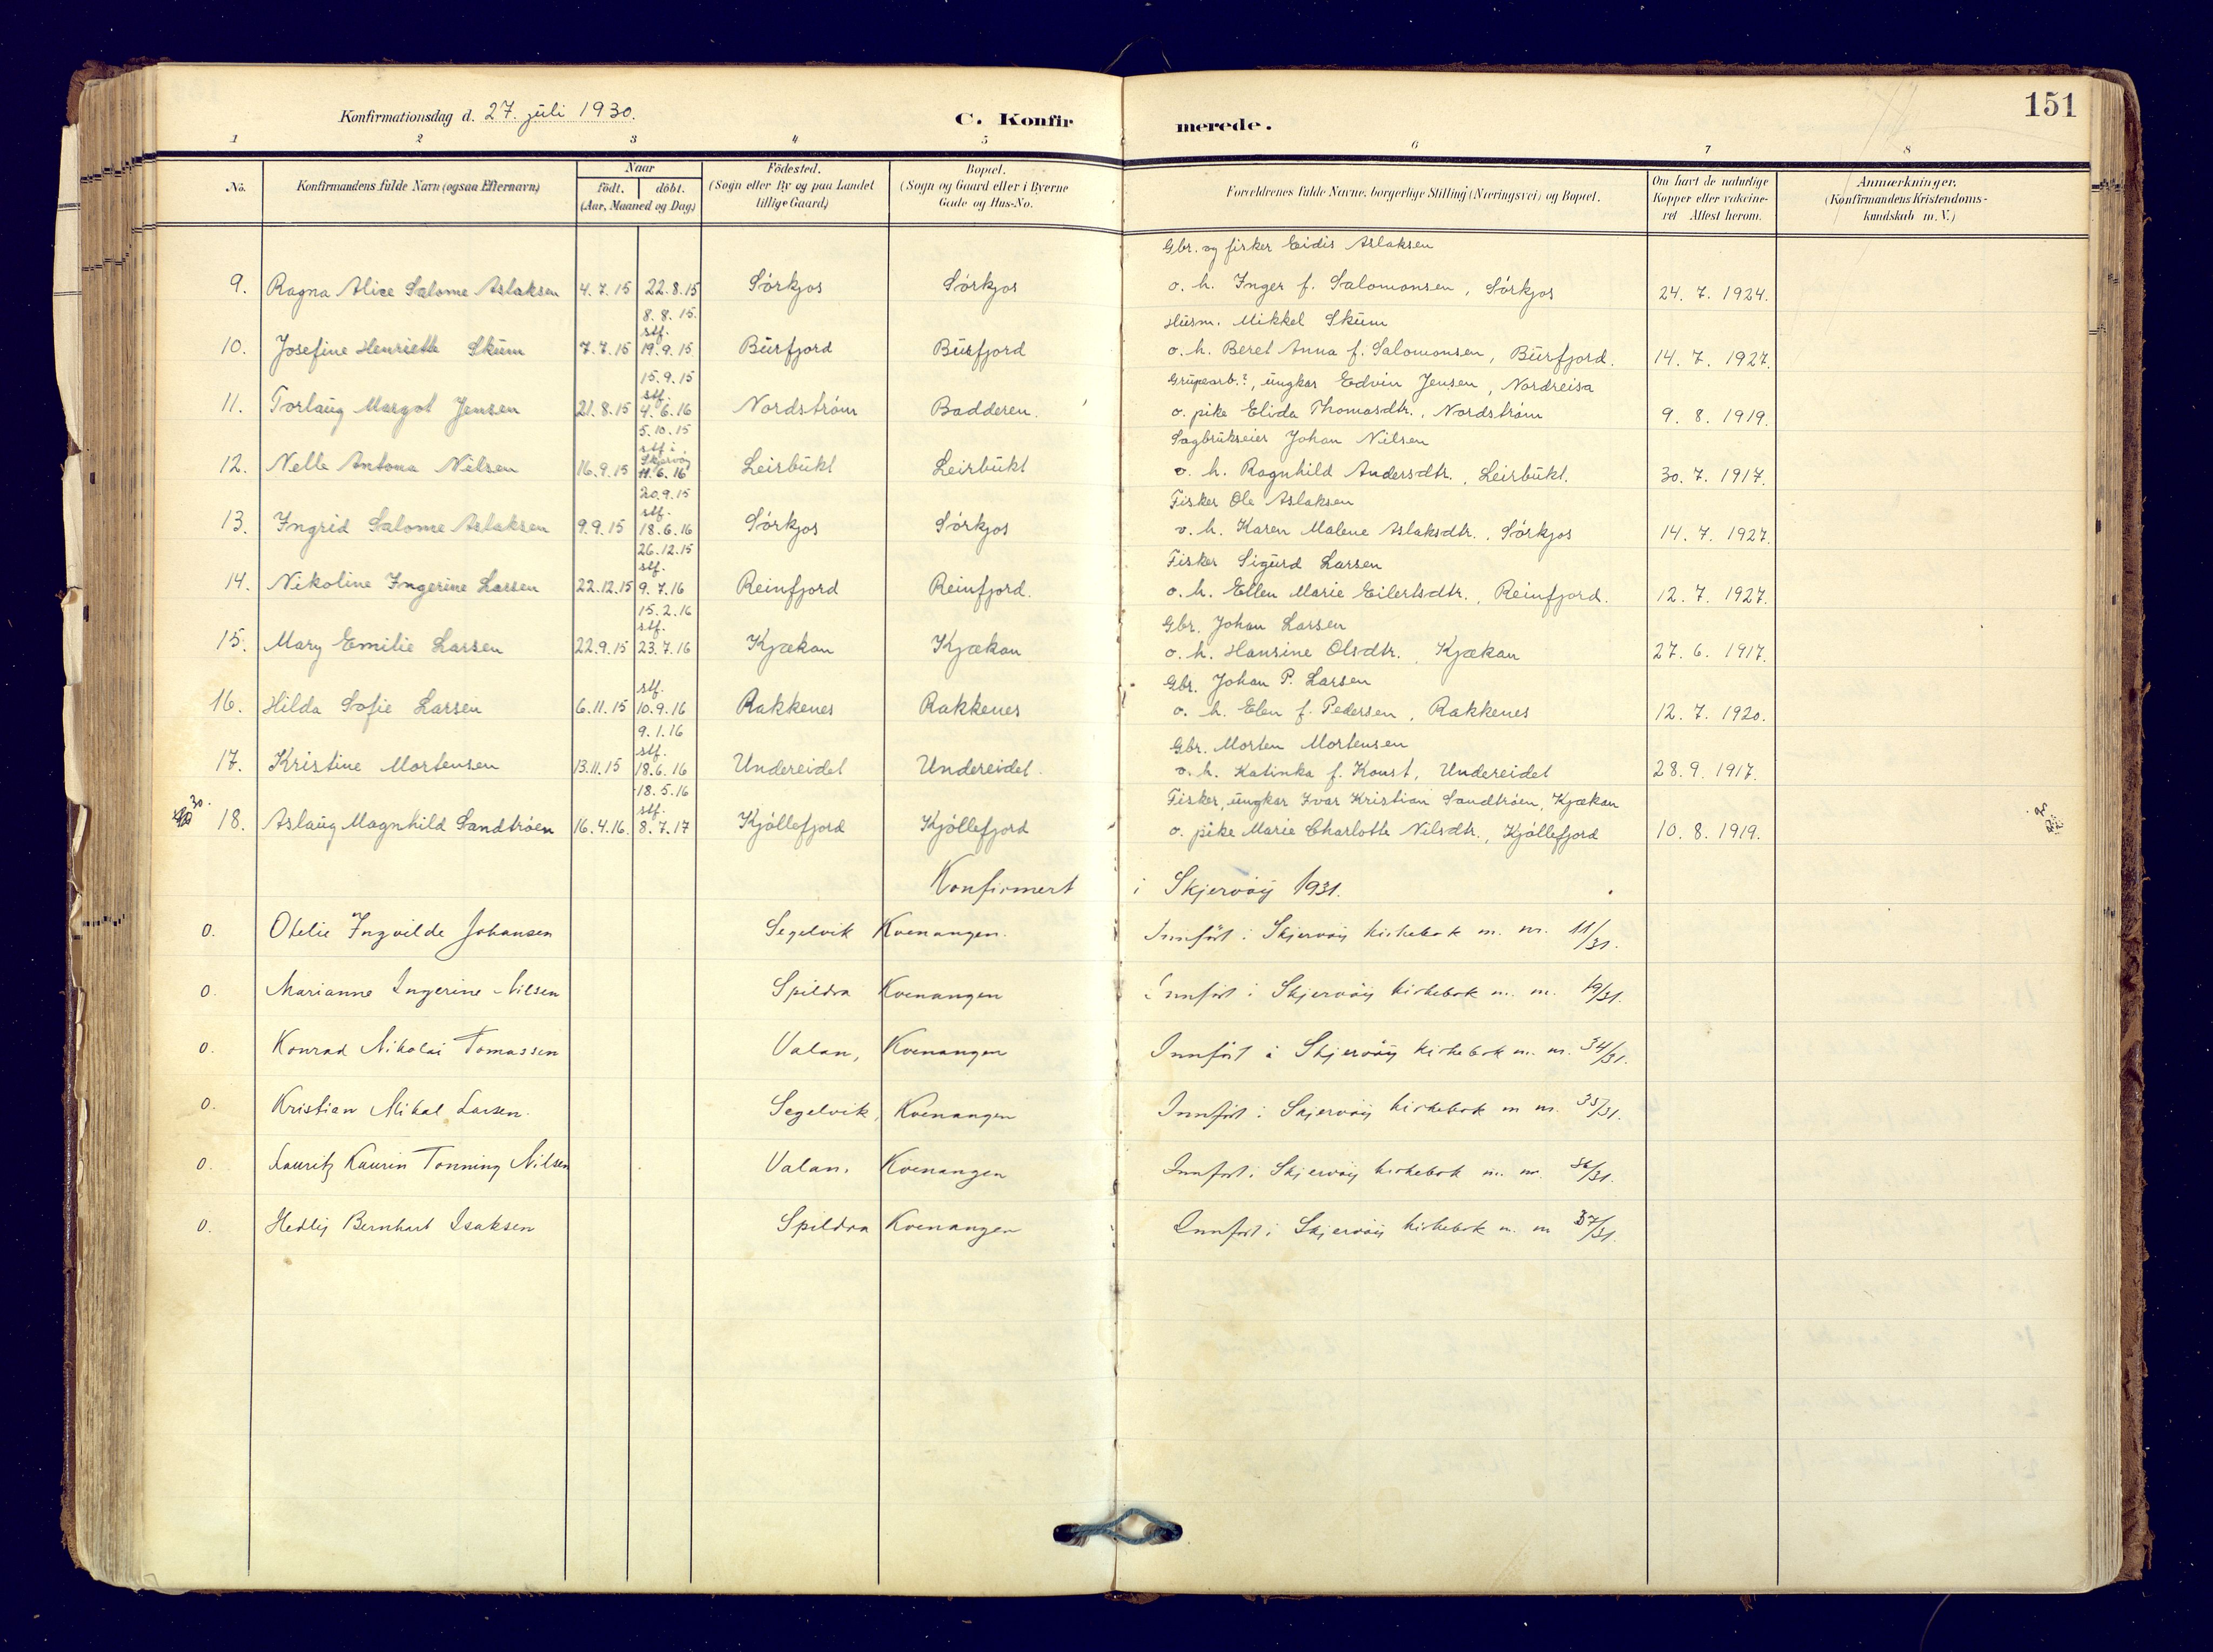 Konfirmationsdag d. 27. juli 1930.
C. Konfirmerede.
151
1 2 3 4 5 6 7 8
No.
Konfirmandens fulde Navn (ogsaa Efternavn)
Naar
födt. döbt.
(Aar, Maaned og Dag.)
Födested.
(Sogn eller By og paa Landet
tillige Gaard)
Bopæl.
(Sogn og Gaard eller i Byerne
Gade og Hus-No.
Forældrenes fulde Navne, borgerlige Stilling (Næringsvei) og Bopæl.
Om havt de naturlige
Kopper eller vakcine-
ret Attest herom.
Anmærkninger.
(Konfirmandens Kristendoms-
kundskab m. V.)
Gbr. og fisker Eidis Aslaksen
9. Ragna Alice Salome Aslaksen 4.7.15 22.8.15 Sörkjos Sörkjos o. h. Inger f. Salomonsen, Sörkjos 24. 7. 1924.
8. 8. 15.
stf. Husm. Mikkel Skum
10. Josefine Henriette Skum 7.7.15 19.9.15 Burfjord Burfjord o. h. Beret Anna f. Salomonsen, Burfjord. 14. 7. 1927.
15.9.15
stf. Grupearb.?, ungkar Edvin Jensen, Nordreisa
11. Torlaug Margot Jensen 21.8.15 4.6.16 Nordström Badderen. o. pike Elida Thomasdtr., Nordström 9. 8. 1919.
5.10.15
stf. i Sagbrukseier Johan Nilsen
Skjervöy
12. Nelle Antona Nilsen 16.9.15 11.6.16 Leirbukt Leirbukt o. h. Ragnhild Andersdtr., Leirbukt. 30. 7. 1917.
20.9.15
stf. Fisker Ole Aslaksen
13. Ingrid Salome Aslaksen 9.9.15 18.6.16 Sörkjos Sörkjos o. h. Karen Malene Aslaksdtr., Sörkjos 14. 7. 1927.
26.12.15
stf. Fisker Sigurd Larsen
14. Nikoline Ingerine Larsen 22.12.15 9.7.16 Reinfjord Reinfjord. o. h. Ellen Marie Eilertsdtr., Reinfjord. 12. 7. 1927.
15.2.16
stf. Gbr. Johan Larsen
15. Mary Emilie Larsen 22.9.15 23.7.16 Kjækan Kjækan o. h. Hansine Olsdtr., Kjækan 27. 6. 1917.
stf. Gbr. Johan P. Larsen
16. Hilda Sofie Larsen 6.11.15 10.9.16 Rakkenes Rakkenes o. h. Elen f. Pedersen, Rakkenes 12. 7. 1920.
9.1.16
stf. Gbr. Morten Mortensen
17. Kristine Mortensen 13.11.15 18.6.16 Undereidet Undereidet. o. h. Katinka f. Koust, Undereidet 28.9. 1917.
18.5.16
30. stf. Fisker, ungkar Ivar Kristian Sandtröen, Kjækan
18. Aslaug Magnhild Sandtröen 16.4.16. 8.7.17 Kjöllefjord Kjöllefjord o. pike Marie Charlotte Nilsdtr., Kjöllefjord 10. 8. 1919.
Konfirmert i Skjervöy 1931.
0. Otelie Ingvilde Johansen Segelvik Kvenangen. Innfört i Skjervöy kirkebok m. nr. 11/31.
0. Marianne Ingerine Nilsen Spildra Kvenangen Innfört i Skjervöy kirkebok m. nr. 19/31.
0. Konrad Nikolai Tomassen Valan, Kvenangen Innfört i Skjervöy kirkebok m. nr. 34/31.
0. Kristian Mikal Larsen. Segelvik, Kvenangen Innfört i Skjervöy kirkebok m nr. 35/31.
0. Lauritz Kaurin Tonning Nilsen Valan. Kvenangen Innfört i Skjervöy kirkebok m. nr. 36/31.
0. Hedly Bernhart Isaksen Spildra Kvenangen Innfört i Skjervöy kirkebok m. nr 37/31.